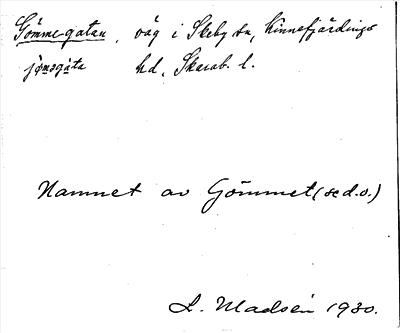 Gömme-gatan, väg i Skeby sn, Kinnefjärdings
jömegáta hd, Skarab. l.
Namnet av Gömmet (se d.o.)
L. Madsén 1930.